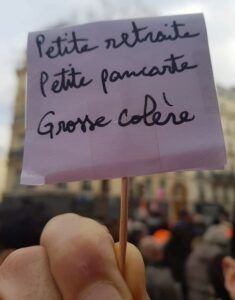 Petite retraite
Petite pancarte
Grosse colère